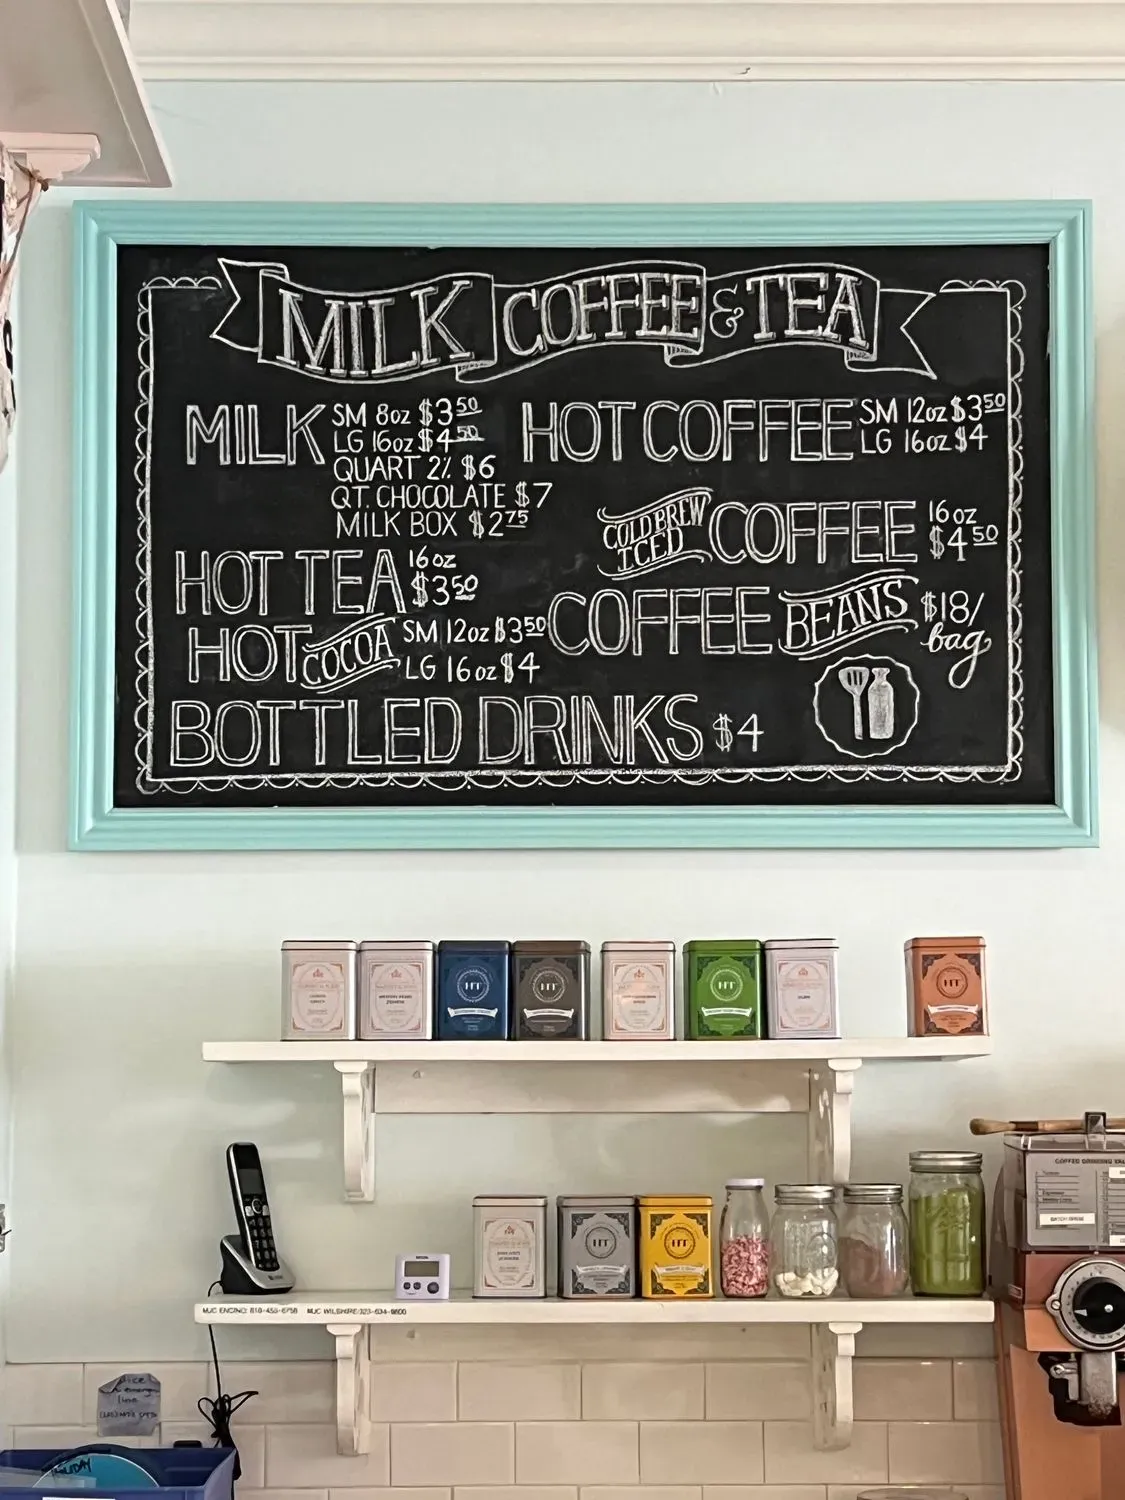 MILK COFFEE & TEA
MILK SM 8oz $3.50
LG 16oz $4.50
QUART 2% $6
QT. CHOCOLATE $7
MILK BOX $2.75
HOT TEA 16oz
$3.50
HOT COCOA SM 12oz $3.50
LG 16oz $4
BOTTLED DRINKS $4
HOT COFFEE SM 12oz $3.50
LG 16oz $4
COLD BREW
ICED COFFEE 16oz
$4.50
COFFEE BEANS $18/
bag
HT
HT
HT
HT
HT
HT
MJC ENCINO: 818-453-8758 MJC WILSHIRE:323-634-9800
line